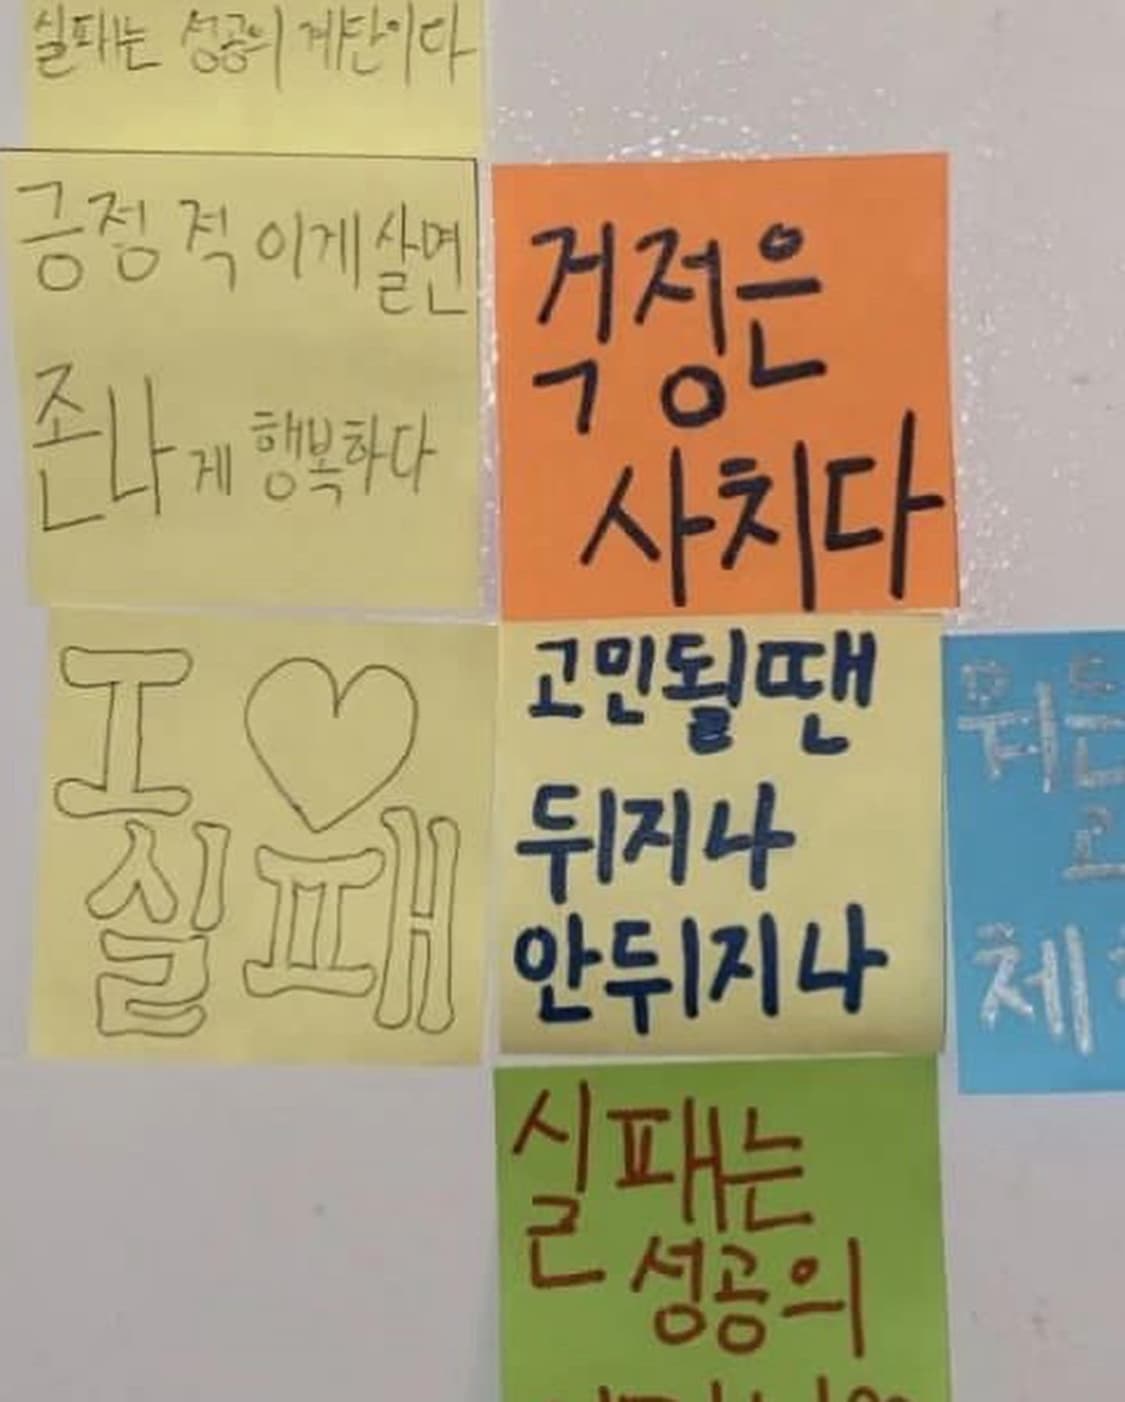 실패는 성공의 계단이다
긍정적이게 살면
존나게 행복하다
걱정은
사치다
I ♡
실패
고민될땐
뒤지나
안뒤지나
실패는
성공의